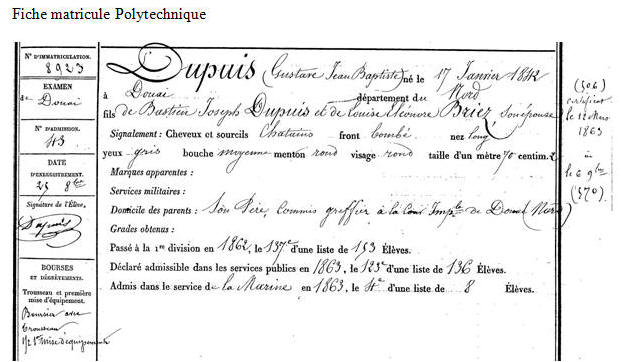 Fiche matricule Polytechnique
N° D'IMMATRICULATION.
8923
EXAMEN
de Douai
N° D'ADMISSION.
43
DATE
D'ENREGISTREMENT.
25 8bre
Signature de l'Élève.
Dupuis
BOURSES
ET DÉGRÈVEMENTS.
Trousseau et première
mise d'équipement.
Boursier avec
trousseau
1/2 1re mise d'équipement
Dupuis (Gustave Jean Baptiste) né le 17 Janvier 1842
à Douai département du Nord
fils de Bastien Joseph Dupuis et de Louise Eléonore Briez, son épouse
Signalement : Cheveux et sourcils Chatains front bombé nez long
yeux gris bouche moyenne menton rond visage rond taille d'un mètre 70 centim.
Marques apparentes :
Services militaires :
Domicile des parents : Son Père Commis greffier à la Cour Imple de Douai (Nord)
Grades obtenus :
Passé à la 1re division en 1862, le 137e d'une liste de 153 Élèves.
Déclaré admissible dans les services publics en 1863, le 123e d'une liste de 136 Élèves.
Admis dans le service de la Marine en 1863, le 4e d'une liste de 8 Élèves.
(506)
certificat
le 12 Mars
1863
le 6 9bre
(570)